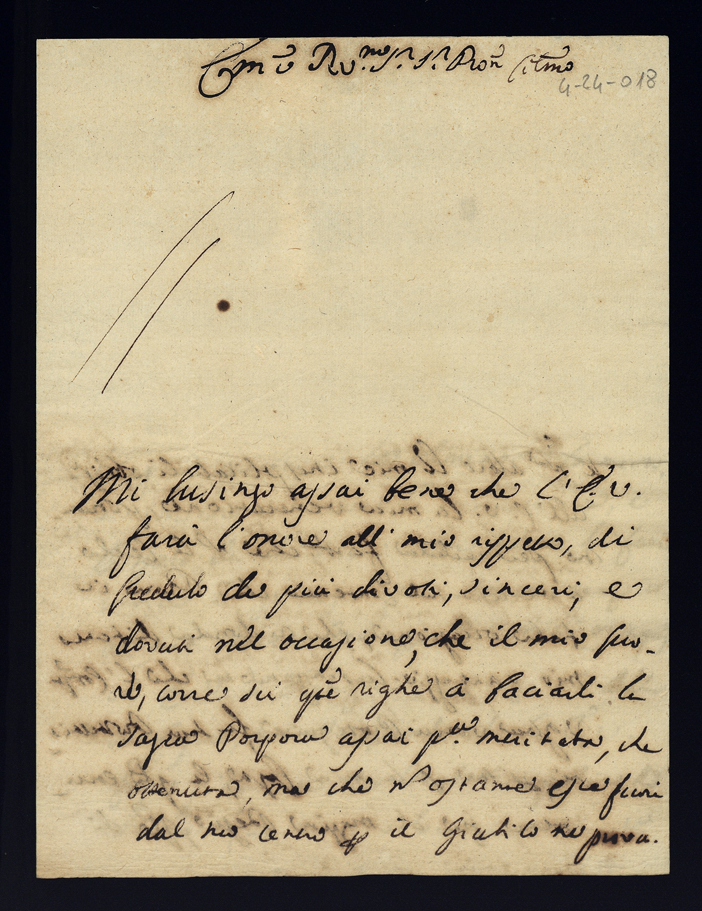 Em̃o Rv.mo Sr. Sr. Pron Cltmo
4-24-018
Mi lusingo assai bene che l'E. V.
farà l'onore all' mio rispetto, di
crederlo de più divoti, sinceri, e
dovuti nel occasione, che il mio cuo-
re, corre su q̃te righe à baciarli la
Sagra Porpora assai p.ma meritata, che
ottenuta, ma che nõ ostante esce fuori
dal suo centro p il Giubilo ne prova.